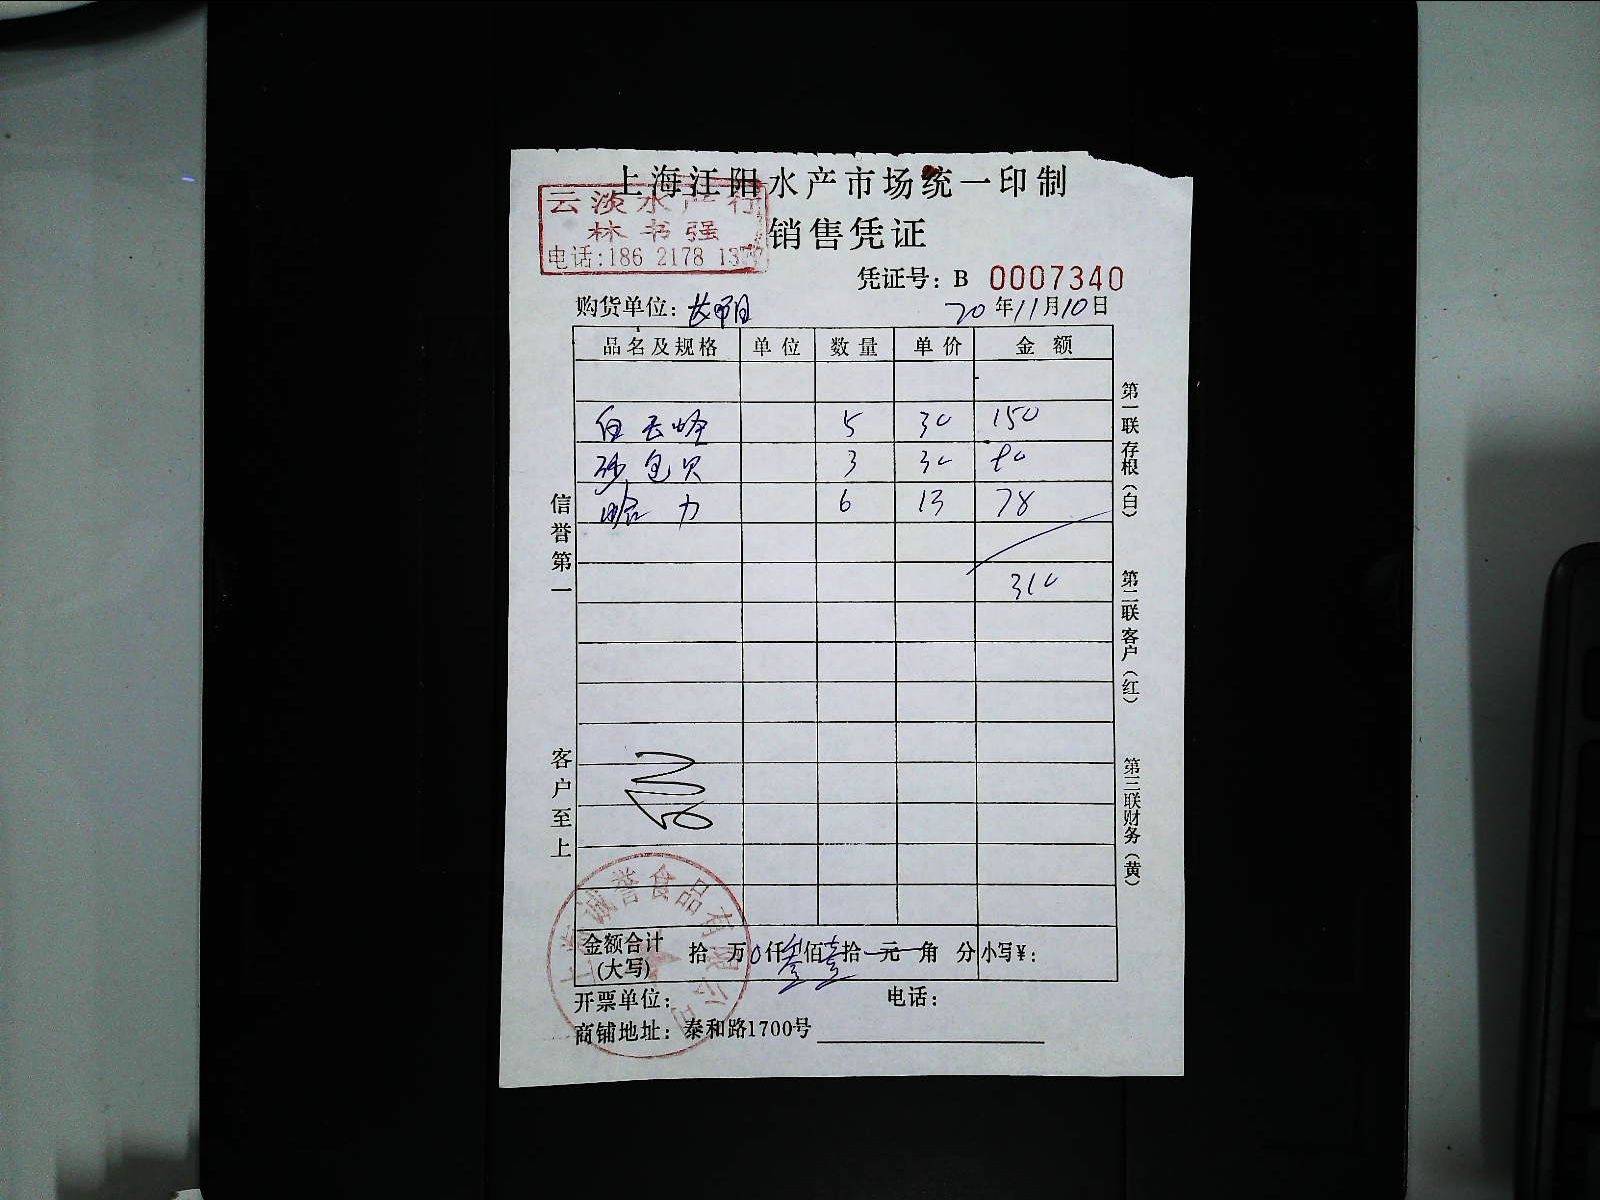 上海江阳水产市场统一印制
云淡水产行
林书强
电话:186 2178 13
销售凭证
凭证号: B 0007340
购货单位:
20年11月10日
品名及规格 单位 数量 单价 金额
5 30 150
砂包贝 3 30
哈力 6 13 78
310
信誉第一
客户至上
第一联存根(白)
第二联客户(红)
第三联财务(黄)
诚誉食品有限公司
金额合计(大写) 拾 万0仟叁佰壹拾 元 角 分 小写¥:
开票单位: 电话:
商铺地址: 泰和路1700号